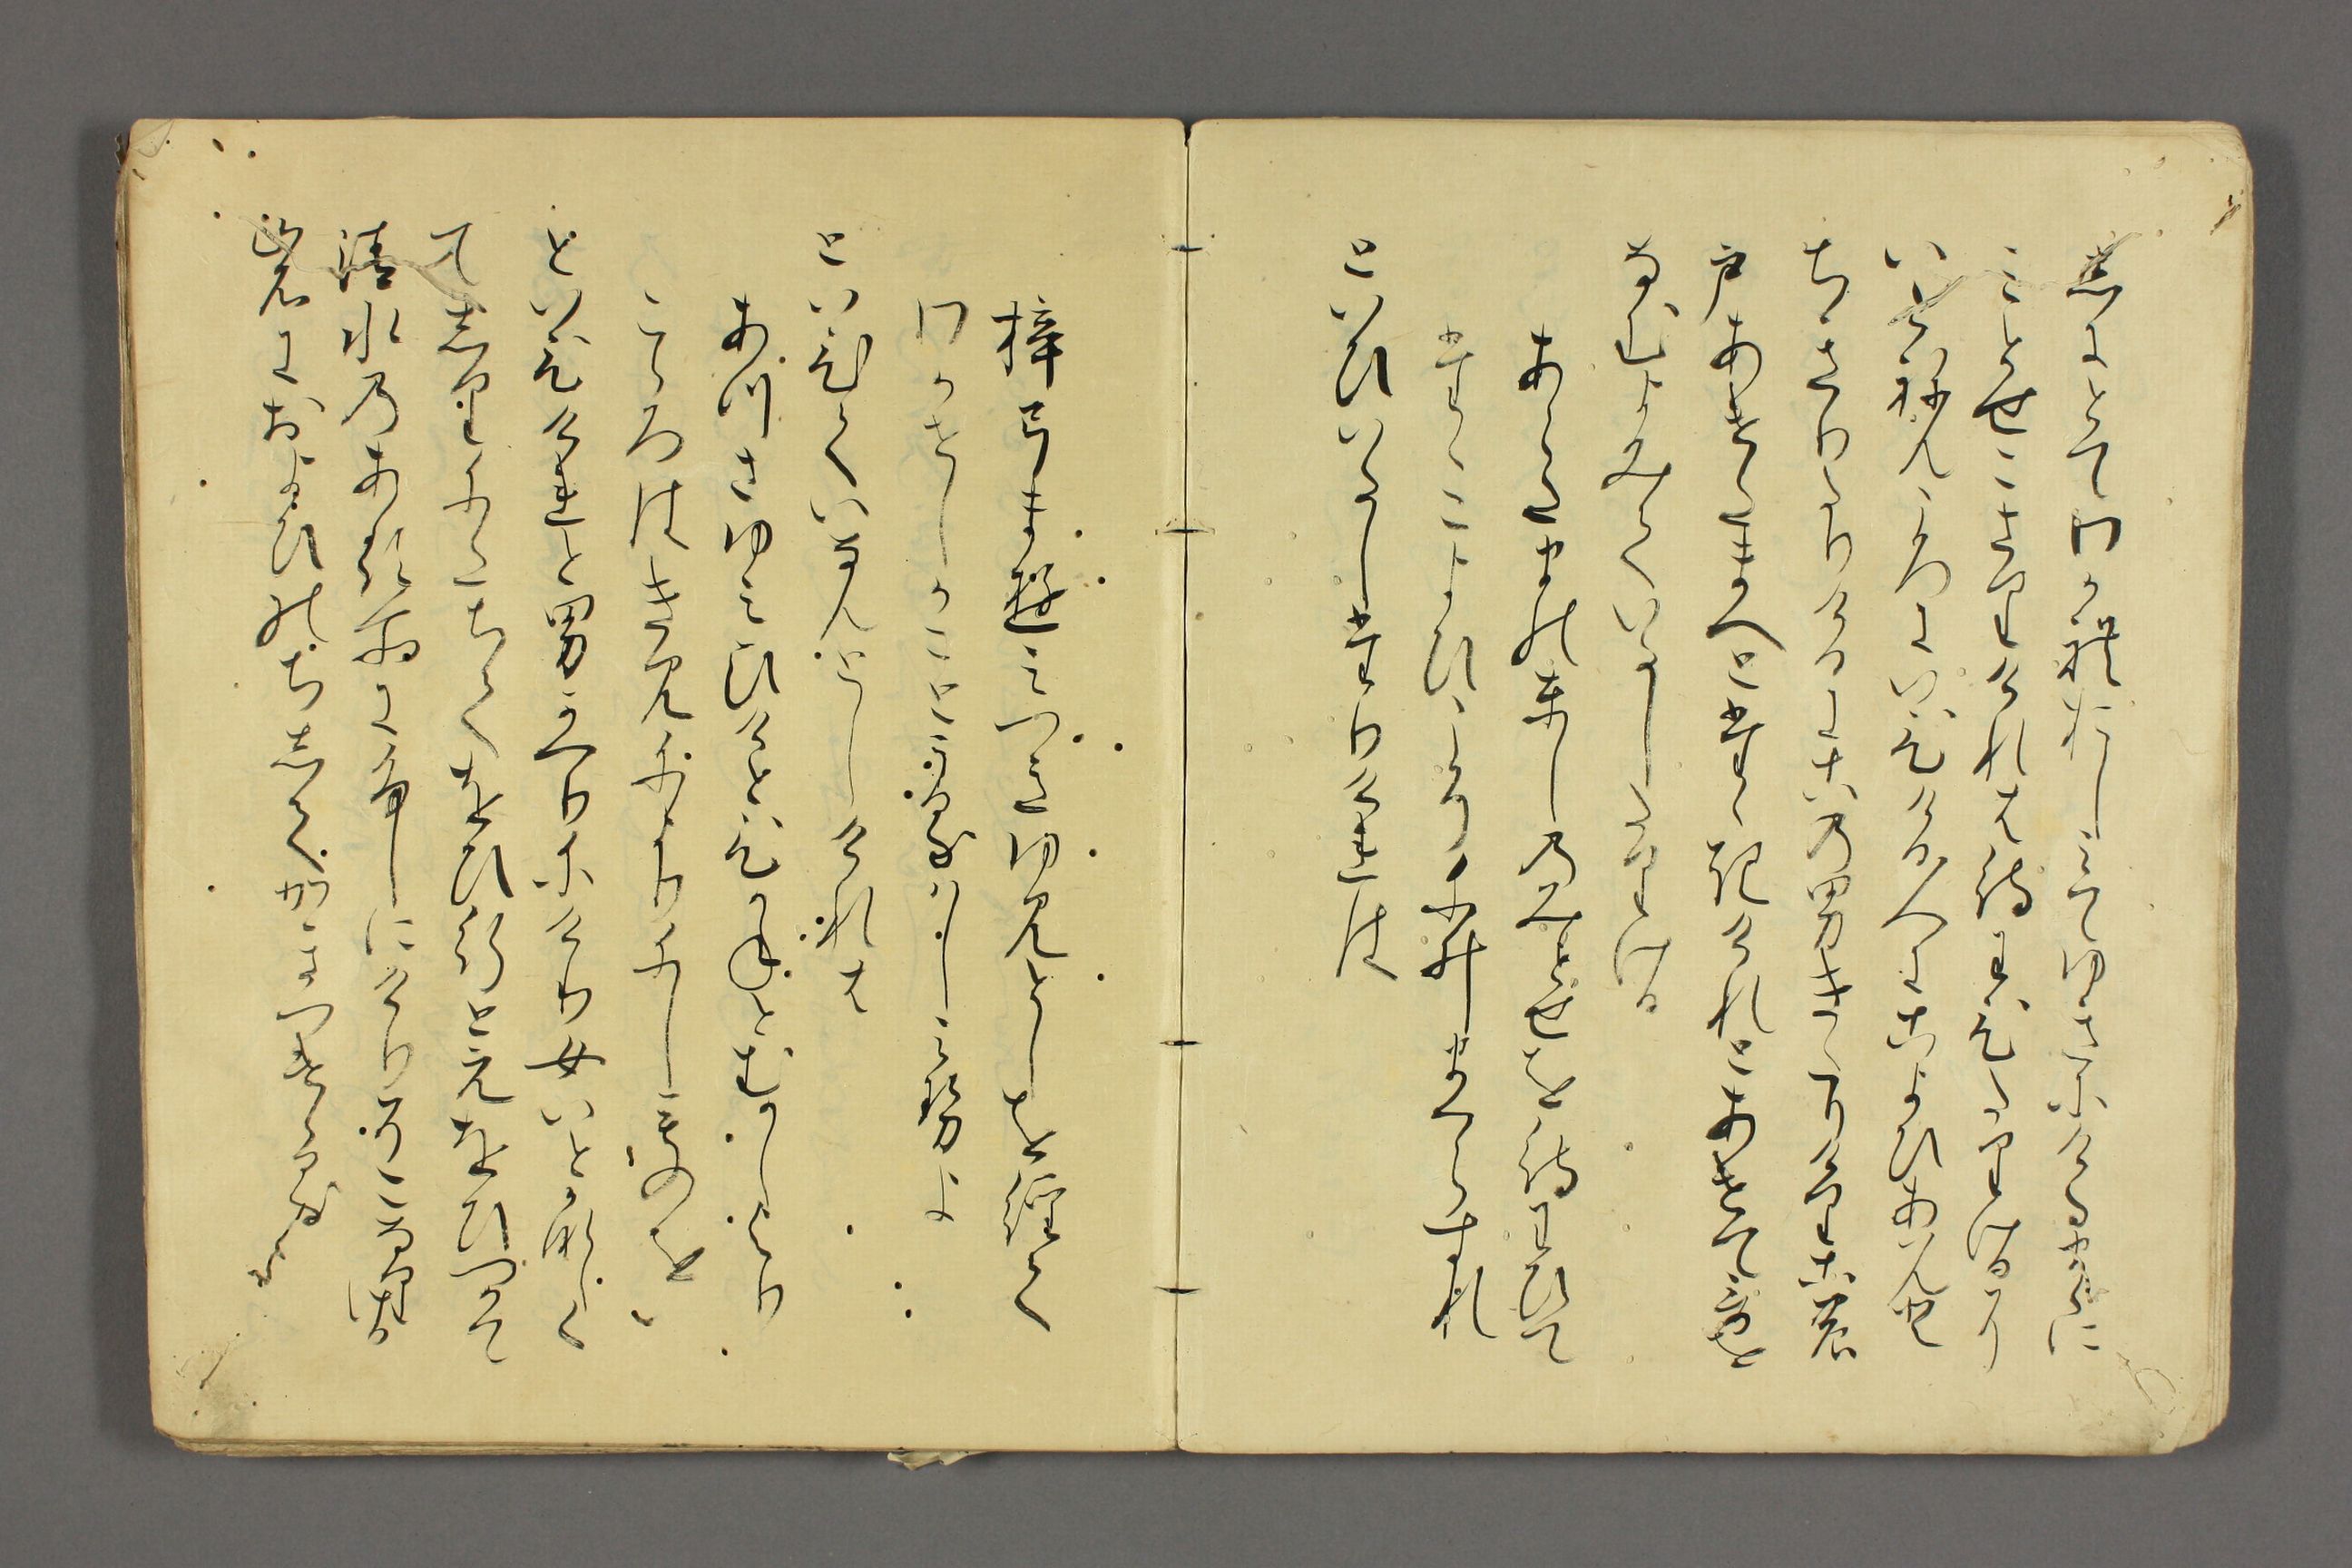 志にとてわかれおしみてゆきにけるまゝに
みとせこさりけれは待わひたりけるに
いとねんころにいひける人にこよひあはんと
ちきりたりけるにこの男きたりけりこの
戸あけたまへとたゝきけれとあけてうたを
なむよみていたしたりける
あらたまのとしのみとせを待わひて
たゝこよひこそにゐまくらすれ
といひいたしたりけれは
梓弓ま弓つきゆみとしを経て
わかせしかことうるはしみせよ
といひていなんとしけれは
あつさゆみひけとひかねとむかしより
こゝろはきみによりにしものを
といひけれと男かへりにけり女いとかなしく
て志りにたちてをひ行とえをひつかて
清水のある所にふしにけりそこなりける
岩におよひのち志てかきつけゝる